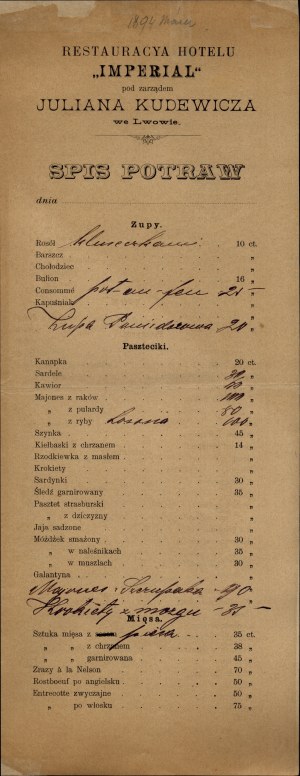 1894
RESTAURACYA HOTELU
„IMPERIAL“
pod zarządem
JULIANA KUDEWICZA
we Lwowie.
SPIS POTRAW
dnia
Zupy.
Rosół kluseczkami 10 ct.
Barszcz „
Chołodziec „
Bulion 16 „
Consommé pot-au-feu 25 „
Kapuśniak „
Zupa 20 „
Paszteciki.
Kanapka 20 ct.
Sardele „
Kawior „
Majones z raków „
„ z pulardy 80 „
„ z ryby Łososia „
Szynka 45 „
Kiełbaski z chrzanem 14 „
Rzodkiewka z masłem „
Krokiety „
Sardynki 30 „
Śledź garnirowany 35 „
Pasztet strasburski „
„ z dziczyzny „
Jaja sadzone „
Móżdżek smażony 30 „
„ w naleśnikach 35 „
„ w muszlach 30 „
Galantyna „
Majones Szczupaka 90
Krokiety z mózgu 35
Mięsa.
Sztuka mięsa z 35 ct.
„ z chrzanem 38 „
„ garnirowana 45 „
Zrazy à la Nelson 70 „
Rostboeuf po angielsku 50 „
Entrecotte zwyczajne 50 „
„ po włosku 75 „